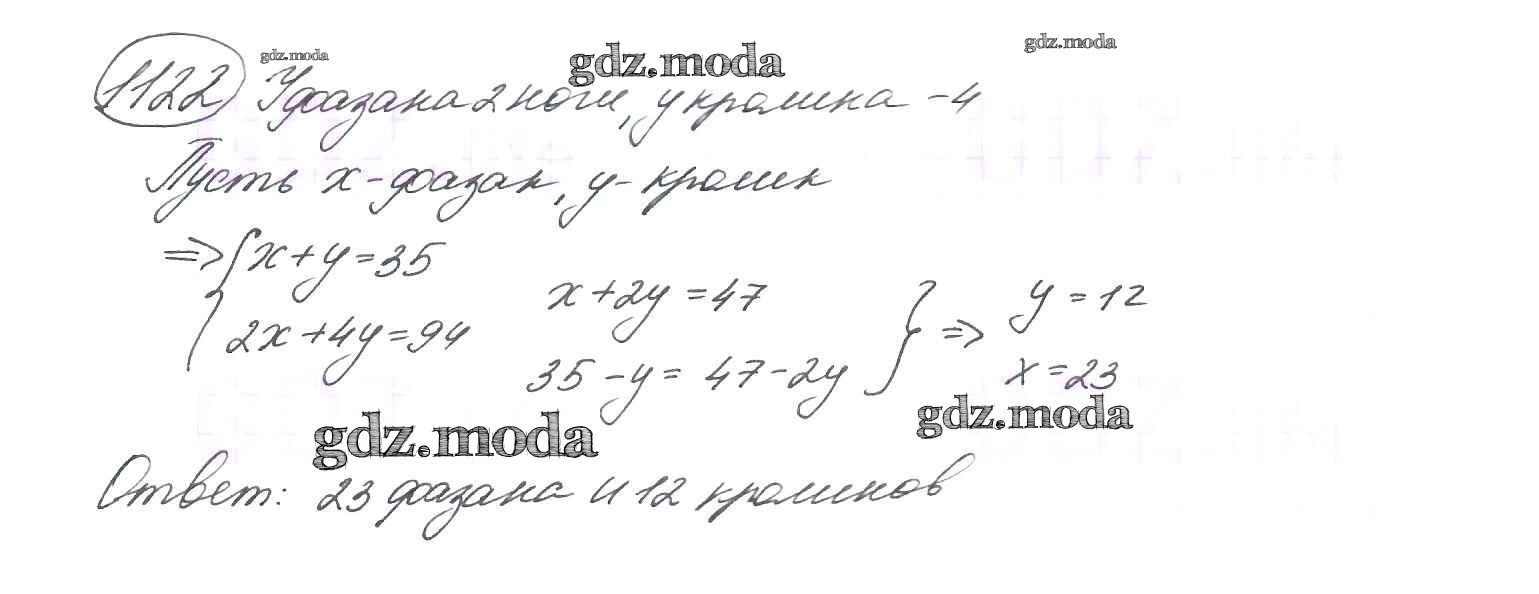 gdz.moda gdz.moda gdz.moda
1122 У фазана 2 ноги, у кролика - 4
Пусть x - фазан, y - кролик
=> { x + y = 35
2x + 4y = 94
x + 2y = 47
35 - y = 47 - 2y } =>
y = 12
x = 23
gdz.moda gdz.moda
Ответ: 23 фазана и 12 кроликов